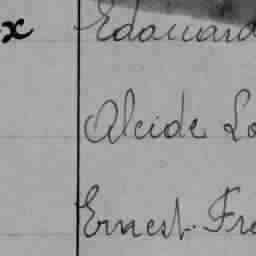 x Edouard
Alcide Lo
Ernest. Fre